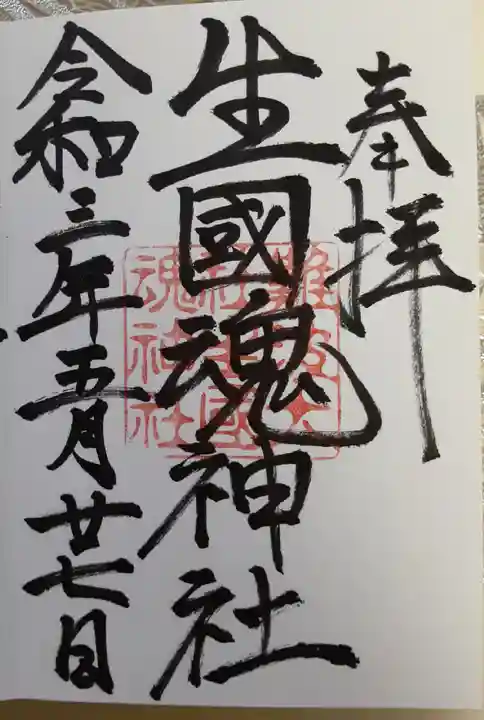 奉拝
生國魂神社
令和三年五月廿七日